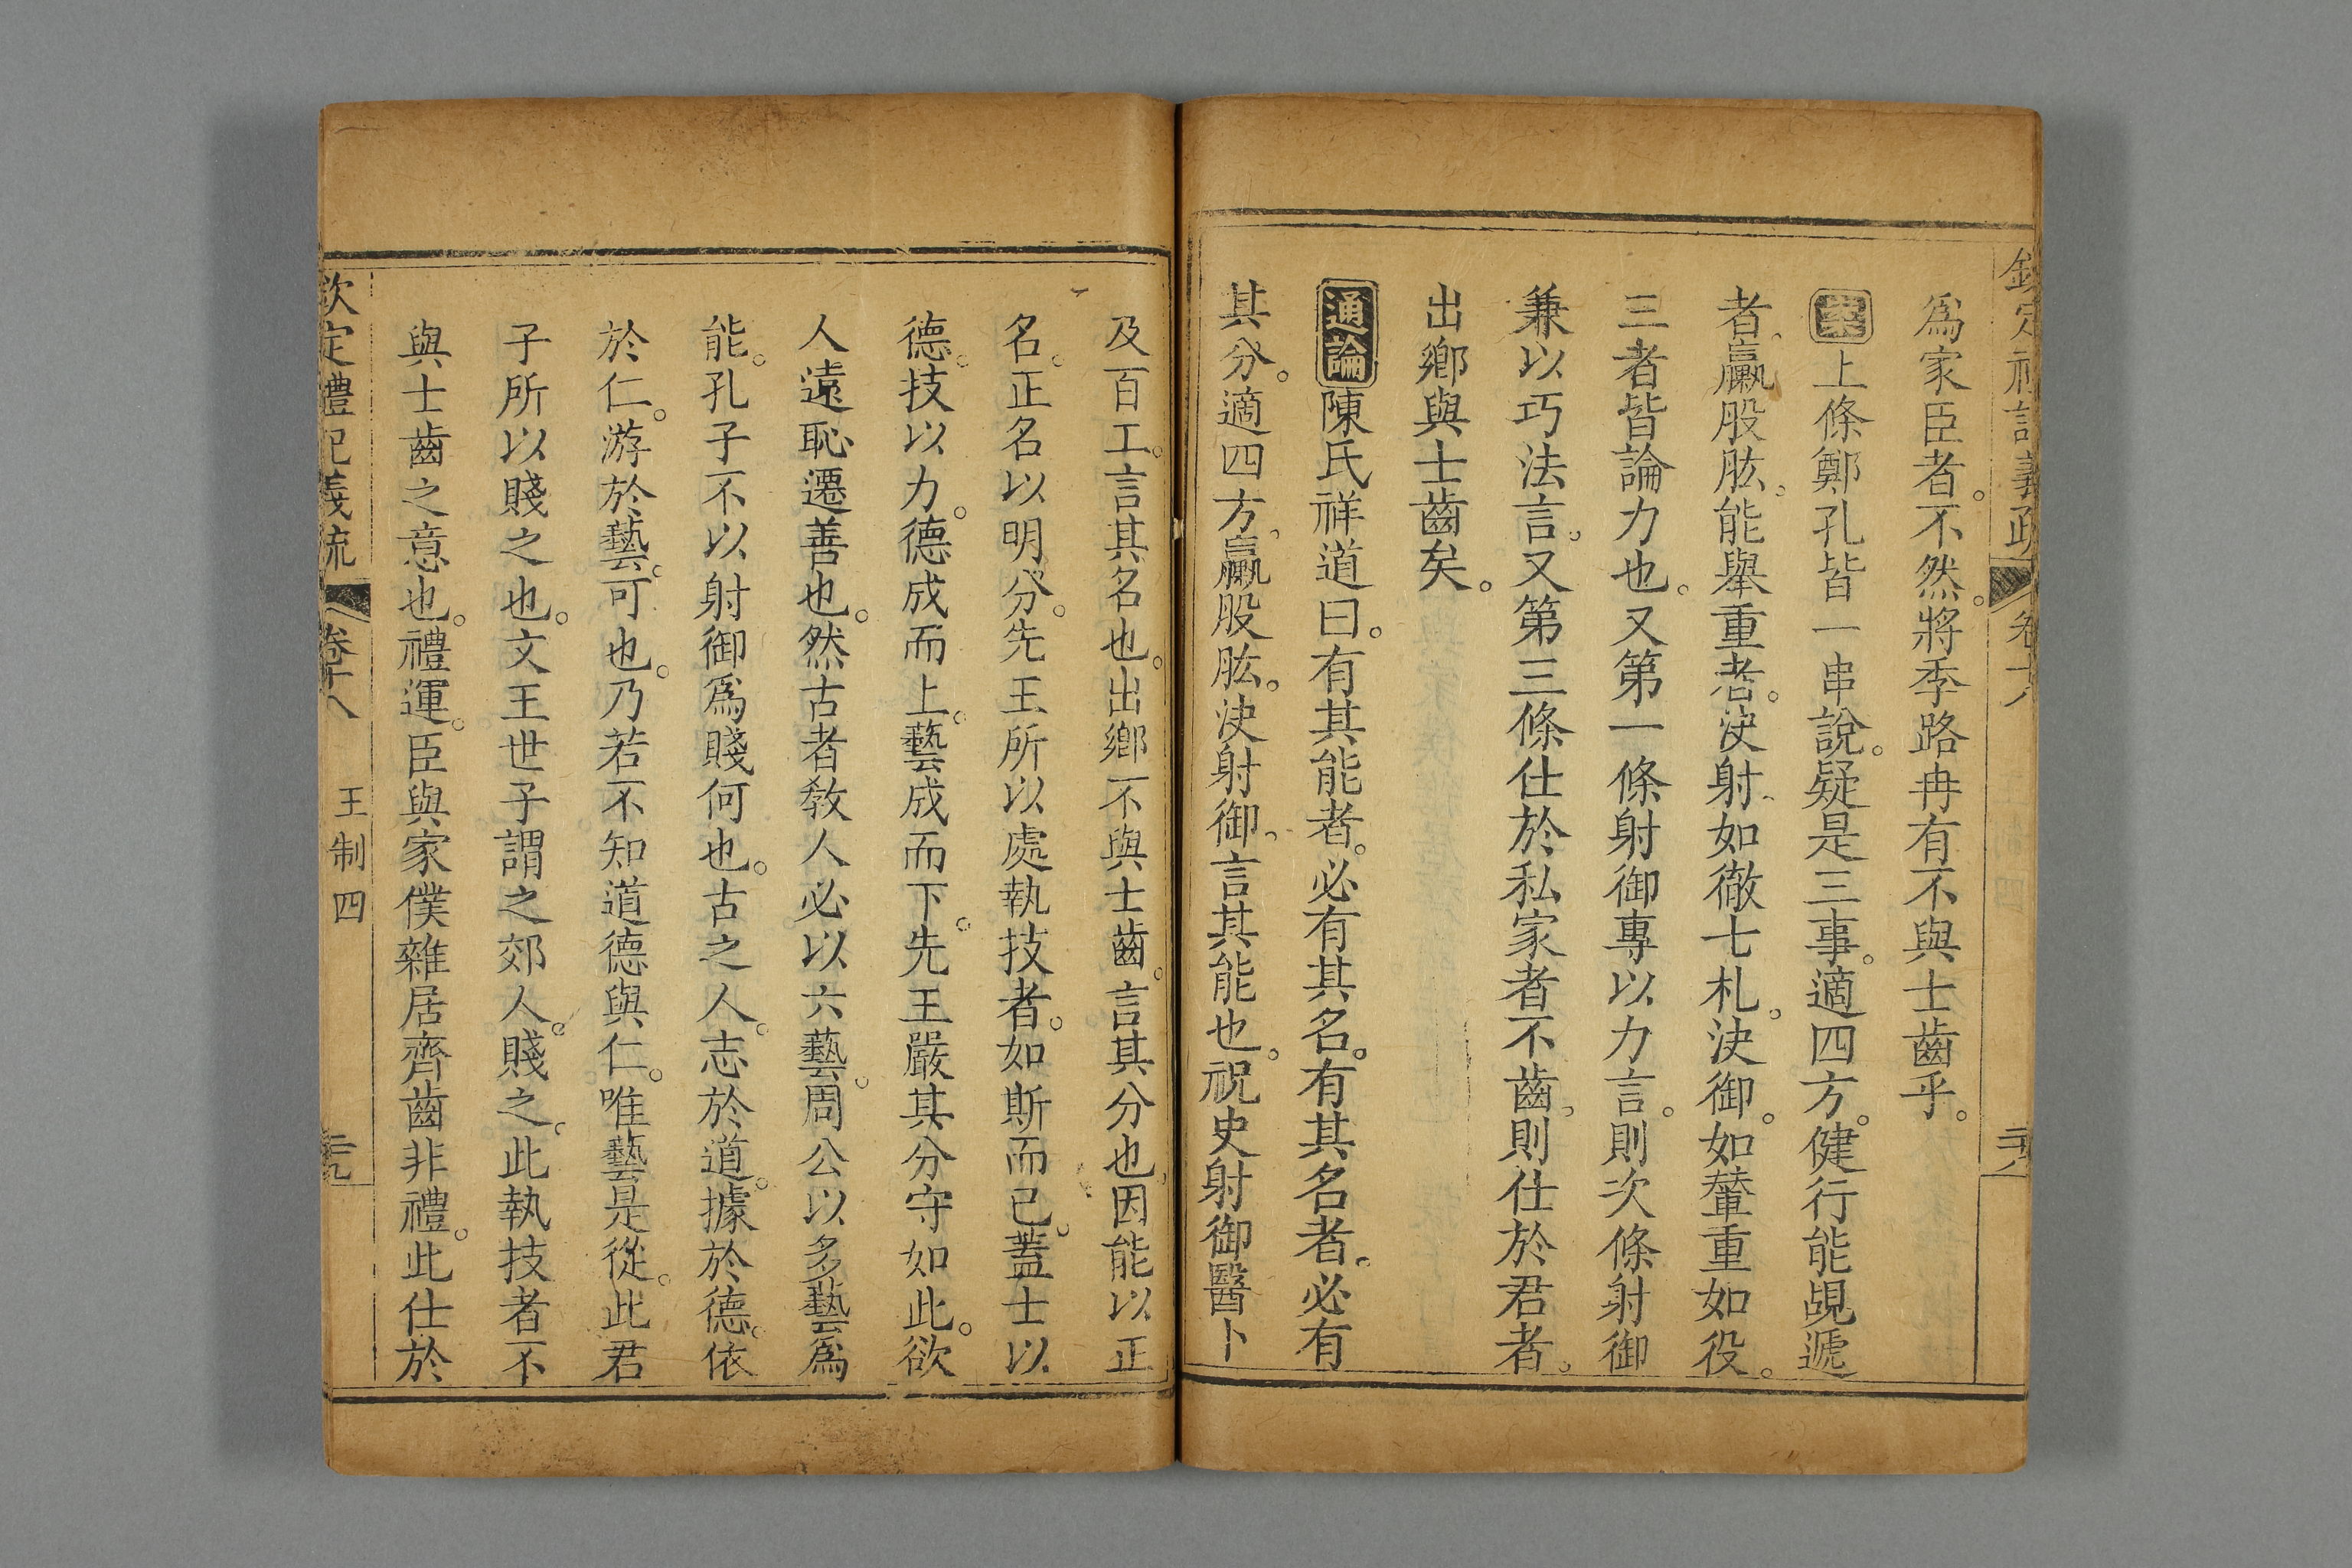 爲家臣者。不然。將季路冉有不與士齒乎。
案上條鄭孔皆一串說。疑是三事。適四方。健行能覘遞
者。贏股肱。能舉重者。決射。如徹七札。決御。如輦重如役。
三者皆論力也。又第一條射御專以力言。則次條射御
兼以巧法言。又第三條仕於私家者不齒。則仕於君者。
出鄉與士齒矣。
通論陳氏祥道曰。有其能者。必有其名。有其名者。必有
其分。適四方。贏股肱。決射御。言其能也。祝史射御醫卜
及百工。言其名也。出鄉不與士齒。言其分也。因能以正
名。正名以明分。先王所以處執技者。如斯而已。蓋士以
德。技以力。德成而上。藝成而下。先王嚴其分守如此。欲
人遠恥遷善也。然古者敎人必以六藝。周公以多藝爲
能。孔子不以射御爲賤何也。古之人。志於道。據於德。依
於仁。游於藝。可也。乃若不知道德與仁。唯藝是從。此君
子所以賤之也。文王世子謂之郊人。賤之。此執技者不
與士齒之意也。禮運。臣與家僕雜居齊齒非禮。此仕於
欽定禮記義疏 卷十八 王制四 二九